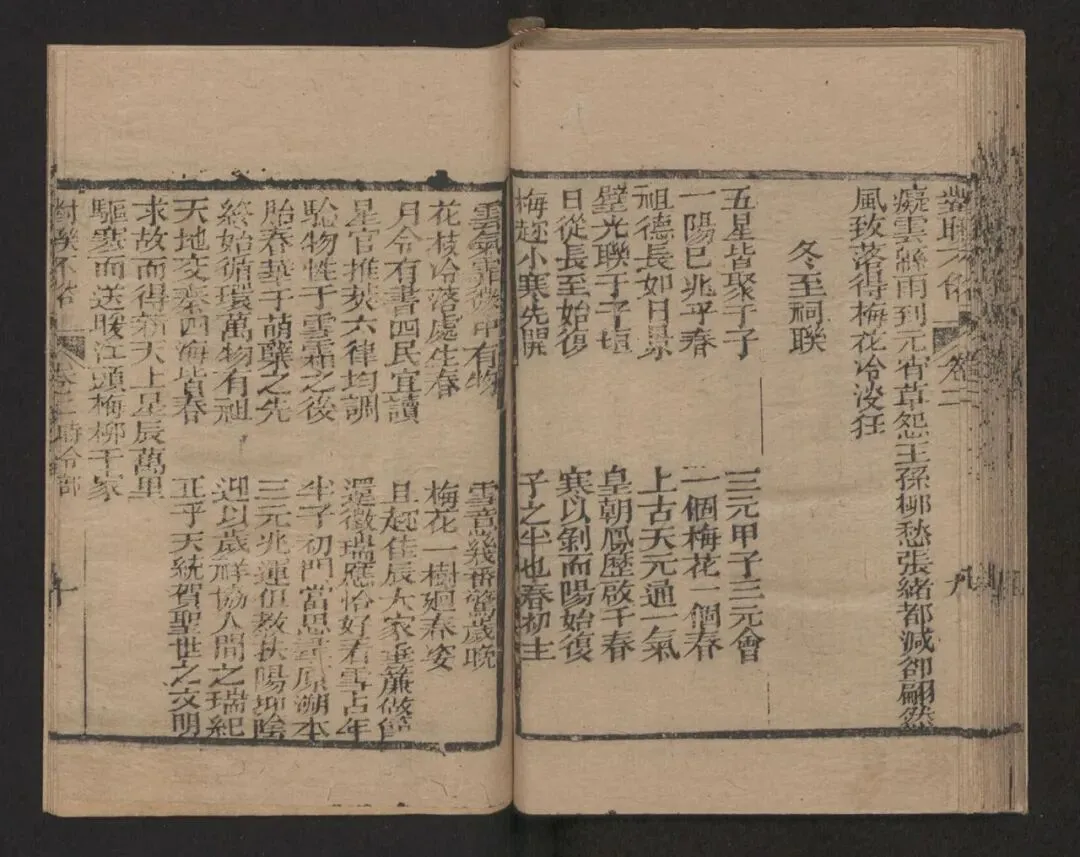 對聯不俗 卷二 九
癡雲絲雨到元宵草怨王孫柳愁張緒都減卻翩然
風致落得梅花冷淡狂
冬至祠聯
五星皆聚于子 三元甲子三元會
一陽已兆乎春 一個梅花一個春
祖德長如日景 上古天元通一氣
璧光聯于子垣 皇朝鳳歷啟千春
日從長至始復 寒以剝而陽始復
梅趂小寒先開 子之半也春初生
雲氣霜後甲有物 雪意幾番驚歲晚
花枝冷落處生春 梅花一樹廻春姿
月令有書四民宜讀 且趂佳辰大家垂簾做節
星官推焚六律均調 還徵瑞應恰好看雪占年
驗物性于雲霜之後 半子初門當思尋原溯本
胎春華于萌櫱之先 三元兆運但教扶陽抑陰
終始循環萬物有祖 迎以歲祥協人間之瑞紀
天地交泰四海皆春 正乎天統賀聖世之文明
求故而得新天上星辰萬里
驅寒而送暖江頭梅柳千家
對聯不俗 卷二 時令部 十